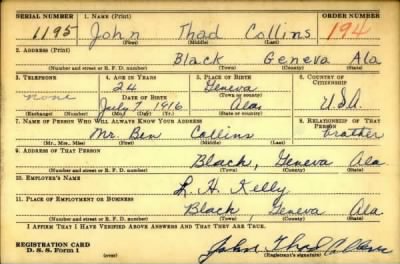 SERIAL NUMBER 1. NAME (Print) ORDER NUMBER
1195 John Thad Collins 194
(First) (Middle) (Last)
2. ADDRESS (Print)
Black Geneva Ala
(Number and street or R. F. D. number) (Town) (County) (State)
3. TELEPHONE 4. AGE IN YEARS 5. PLACE OF BIRTH 6. COUNTRY OF CITIZENSHIP
none 24 Geneva
DATE OF BIRTH (Town or county)
July 7 1916 Ala. U.S.A
(Exchange) (Number) (Mo.) (Day) (Yr.) (State or country)
7. NAME OF PERSON WHO WILL ALWAYS KNOW YOUR ADDRESS 8. RELATIONSHIP OF THAT PERSON
Mr. Ben Collins brother
(Mr., Mrs., Miss) (First) (Middle) (Last)
9. ADDRESS OF THAT PERSON
Black, Geneva Ala
(Number and street or R. F. D. number) (Town) (County) (State)
10. EMPLOYER'S NAME
L. H. Kelly
11. PLACE OF EMPLOYMENT OR BUSINESS
Black, Geneva Ala
(Number and street or R. F. D. number) (Town) (County) (State)
I AFFIRM THAT I HAVE VERIFIED ABOVE ANSWERS AND THAT THEY ARE TRUE.
REGISTRATION CARD John Thad Collins
D. S. S. Form 1 (over) (Registrant's signature)